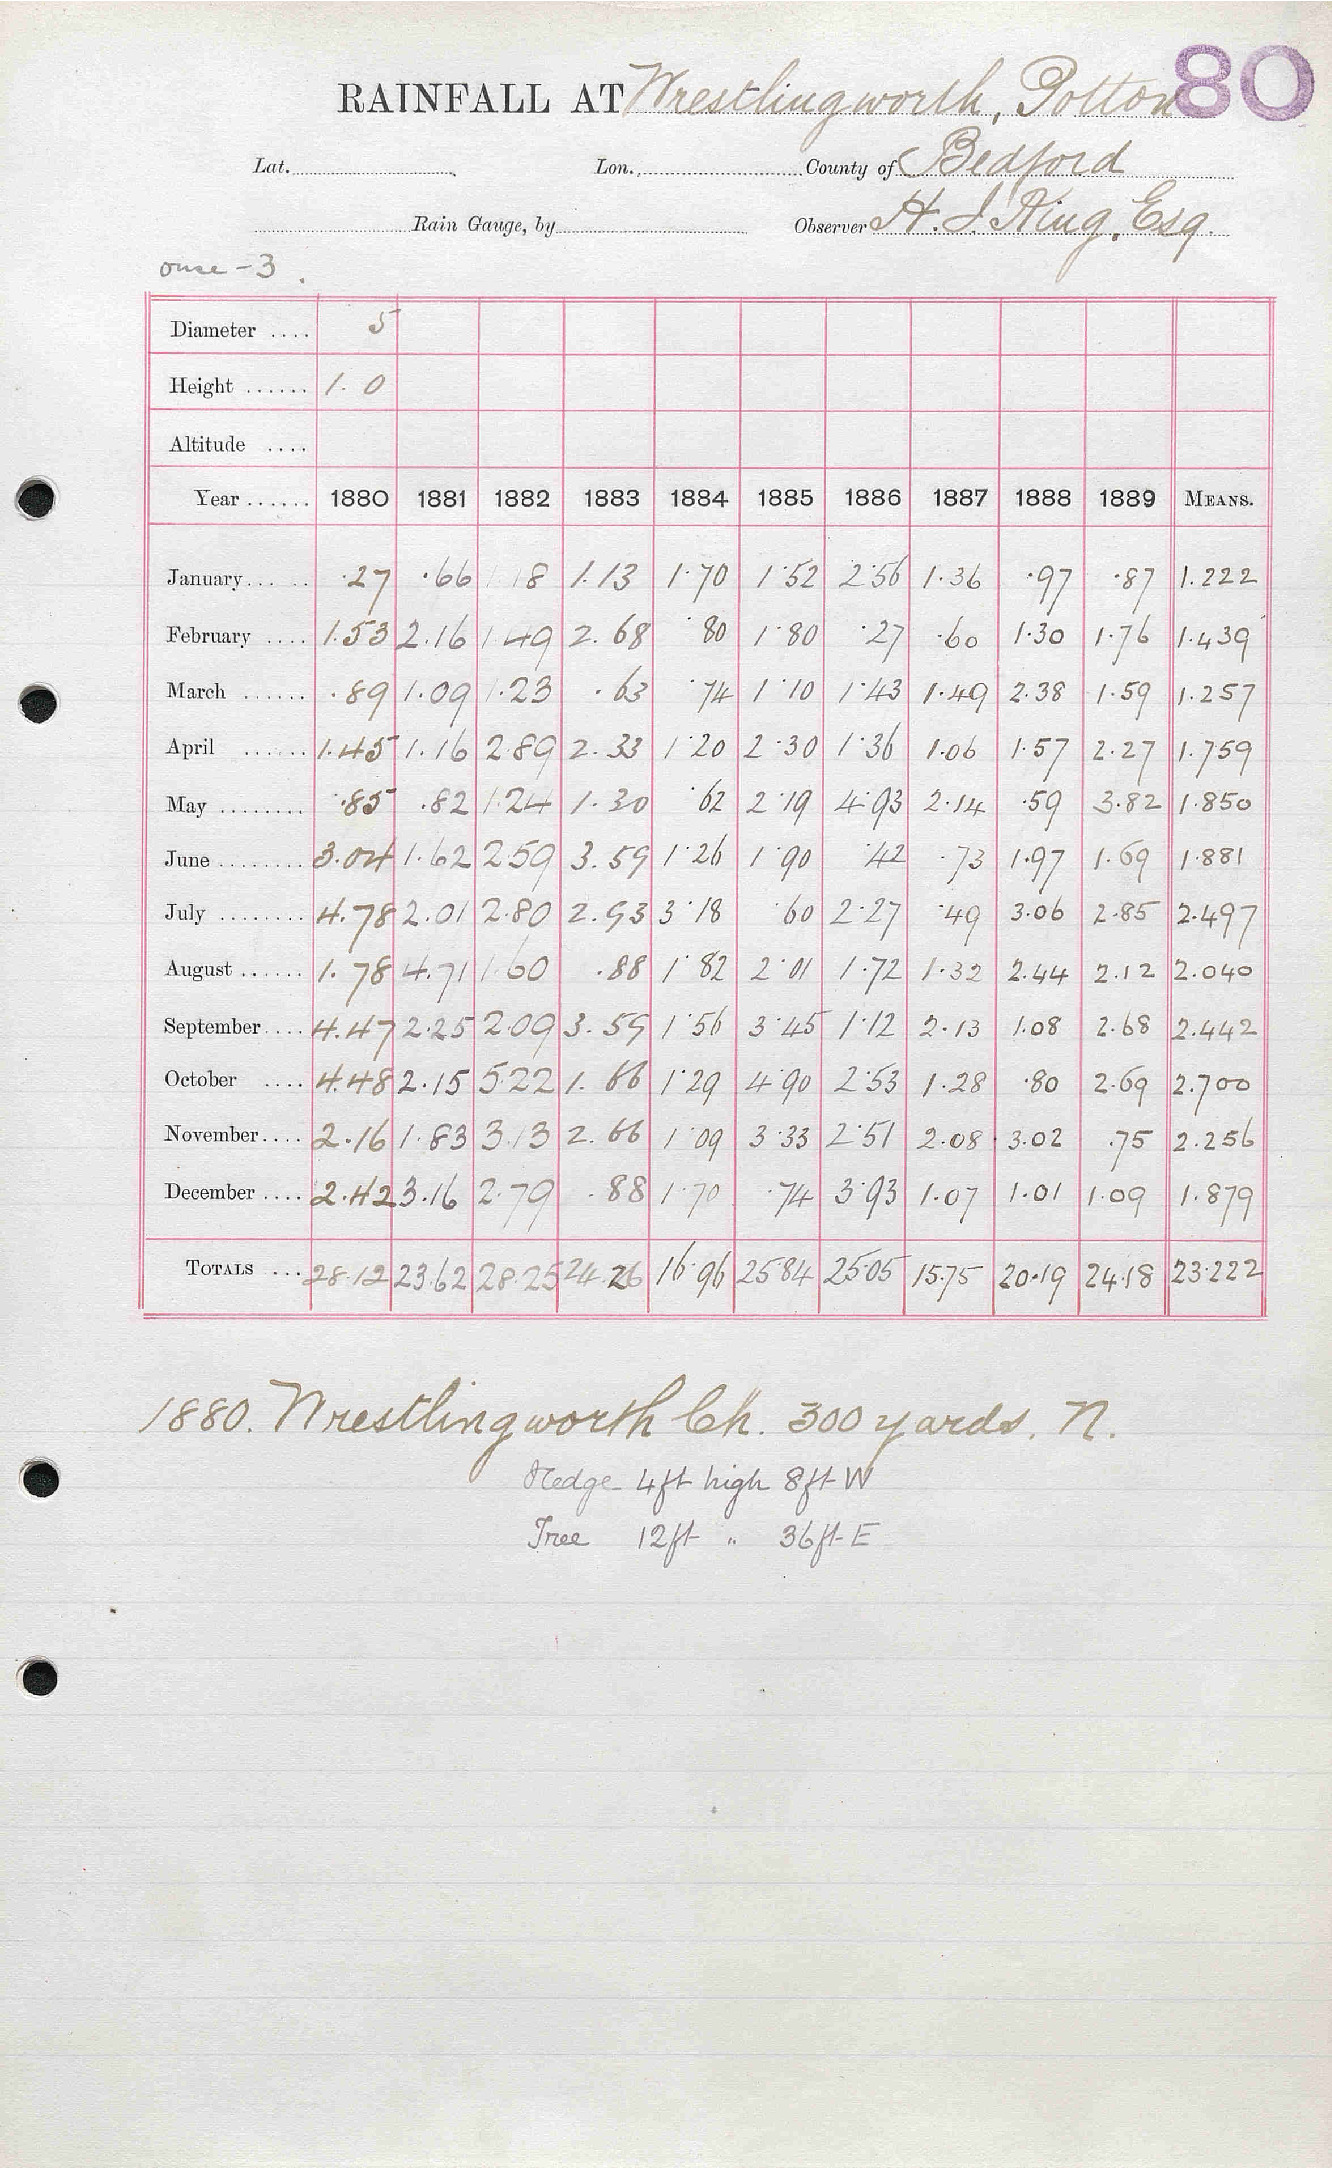 80
RAINFALL AT Wrestlingworth, Potton
Lat. Lon. County of Bedford
Rain Gauge, by Observer H. J. King, Esq.
ouse - 3.
Diameter .... 5
Height ...... 1. 0
Altitude ....
Year ...... 1880 1881 1882 1883 1884 1885 1886 1887 1888 1889 MEANS.
January ... .27 .66 1.18 1.13 1.70 1.52 2.56 1.36 .97 .87 1.222
February .... 1.53 2.16 1.49 2.68 .80 1.80 .27 .60 1.30 1.76 1.439
March ...... .89 1.09 1.23 .63 .74 1.10 1.43 1.49 2.38 1.59 1.257
April ...... 1.45 1.16 2.89 2.33 1.20 2.30 1.36 1.06 1.57 2.27 1.759
May ........ .85 .82 1.24 1.30 .62 2.19 4.93 2.14 .59 3.82 1.850
June ........ 3.04 1.62 2.59 3.59 1.26 1.90 .42 .73 1.97 1.69 1.881
July ........ 4.78 2.01 2.80 2.93 3.18 .60 2.27 .49 3.06 2.85 2.497
August ...... 1.78 4.71 1.60 .88 1.82 2.01 1.72 1.32 2.44 2.12 2.040
September .... 4.47 2.25 2.09 3.59 1.56 3.45 1.12 2.13 1.08 2.68 2.442
October .... 4.48 2.15 5.22 1.66 1.29 4.90 2.53 1.28 .80 2.69 2.700
November .... 2.16 1.83 3.13 2.66 1.09 3.33 2.51 2.08 3.02 .75 2.256
December .... 2.42 3.16 2.79 .88 1.70 .74 3.93 1.07 1.01 1.09 1.879
TOTALS ... 28.12 23.62 28.25 24.26 16.96 25.84 25.05 15.75 20.19 24.18 23.222
1880. Wrestlingworth Ch. 300 yards. N.
Hedge 4ft high 8ft W
Tree 12ft " 36ft E